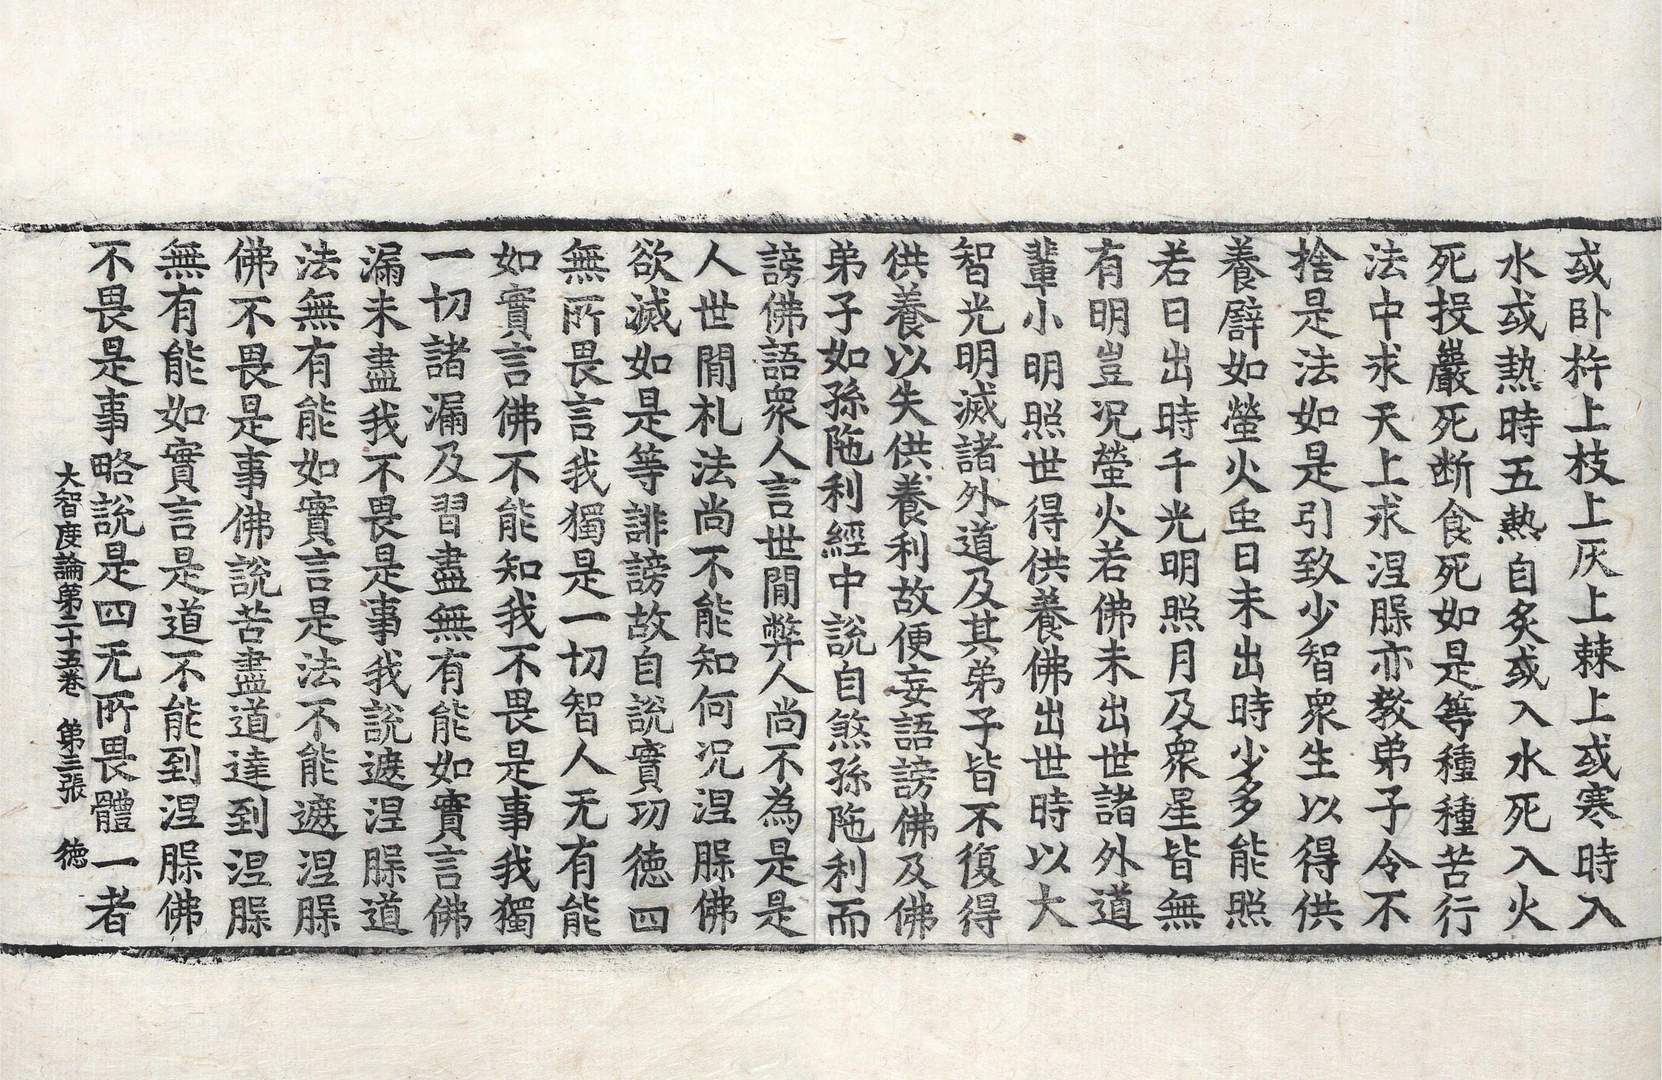 或卧杵上枝上灰上棘上或寒時入
水或熱時五熱自炙或入水死入火
死投巖死断食死如是等種種苦行
法中求天上求涅脲亦教弟子令不
捨是法如是引致少智衆生以得供
養譬如螢火虫日未出時少多能照
若日出時千光明照月及衆星皆無
有明豈况螢火若佛未出世諸外道
輩小明照世得供養佛出世時以大
智光明滅諸外道及其弟子皆不復得
供養以失供養利故便妄語謗佛及佛
弟子如孫陁利經中說自煞孫陁利而
謗佛語衆人言世間弊人尚不為是是
人世間札法尚不能知何况涅脲佛
欲滅如是等誹謗故自說實功徳四
無所畏言我獨是一切智人无有能
如實言佛不能知我不畏是事我獨
一切諸漏及習盡無有能如實言佛
漏未盡我不畏是事我說遮涅脲道
法無有能如實言是法不能遮涅脲
佛不畏是事佛說苦盡道達到涅脲
無有能如實言是道不能到涅脲佛
不畏是事略說是四无所畏體一者
大智度論第二十五卷 第三張 徳